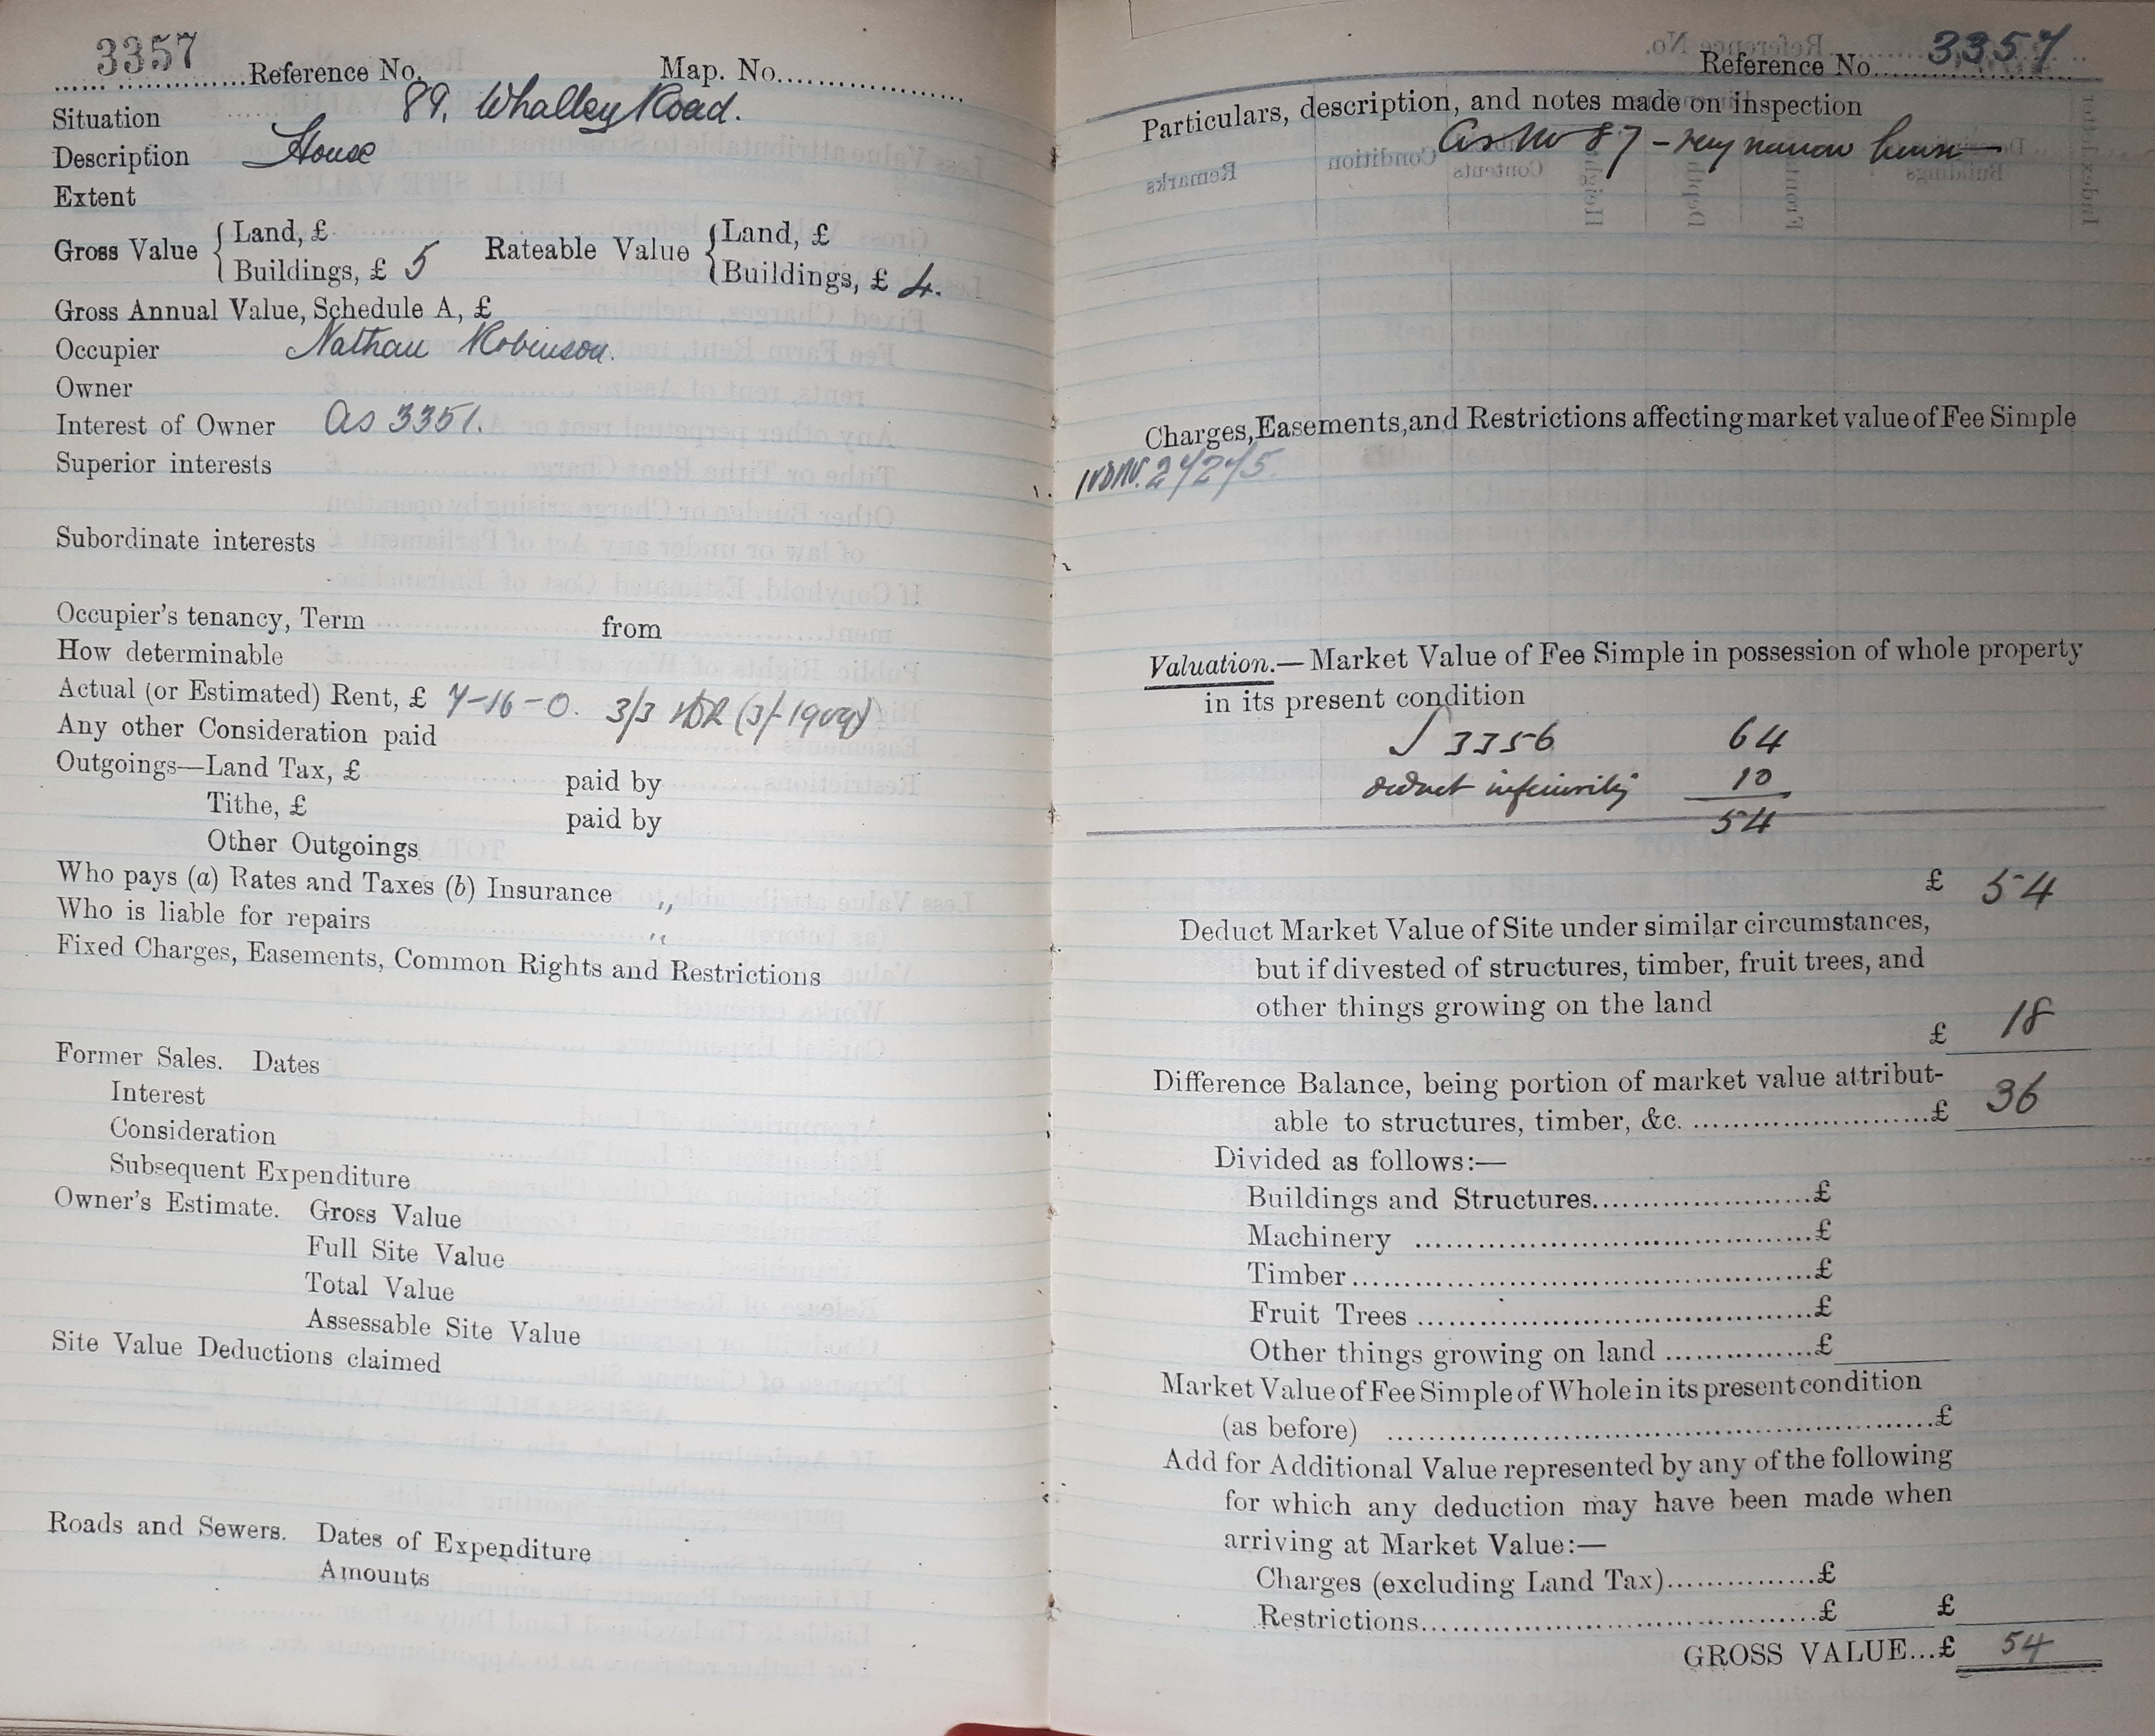 3357 Reference No. Map. No.
Situation 89, Whalley Road.
Description House
Extent
Gross Value { Land, £
Buildings, £ 5
Rateable Value { Land, £
Buildings, £ 4.
Gross Annual Value, Schedule A, £
Occupier Nathan Robinson.
Owner
Interest of Owner As 3351.
Superior interests
Subordinate interests
Occupier's tenancy, Term from
How determinable
Actual (or Estimated) Rent, £ 7-16-0. 3/3 (3/- 1909)
Any other Consideration paid
Outgoings—Land Tax, £ paid by
Tithe, £ paid by
Other Outgoings
Who pays (a) Rates and Taxes (b) Insurance "
Who is liable for repairs "
Fixed Charges, Easements, Common Rights and Restrictions
Former Sales. Dates
Interest
Consideration
Subsequent Expenditure
Owner's Estimate. Gross Value
Full Site Value
Total Value
Assessable Site Value
Site Value Deductions claimed
Roads and Sewers. Dates of Expenditure
Amounts
Reference No. 3357
Particulars, description, and notes made on inspection
As No 87 - very narrow house
Charges, Easements, and Restrictions affecting market value of Fee Simple
27275.
Valuation.—Market Value of Fee Simple in possession of whole property
in its present condition
3356 64
deduct inferiority 10
54
£ 54
Deduct Market Value of Site under similar circumstances,
but if divested of structures, timber, fruit trees, and
other things growing on the land
£ 18
Difference Balance, being portion of market value attribut-
able to structures, timber, &c. £ 36
Divided as follows:—
Buildings and Structures £
Machinery £
Timber £
Fruit Trees £
Other things growing on land £
Market Value of Fee Simple of Whole in its present condition
(as before) £
Add for Additional Value represented by any of the following
for which any deduction may have been made when
arriving at Market Value:—
Charges (excluding Land Tax) £
Restrictions £ £
GROSS VALUE...£ 54